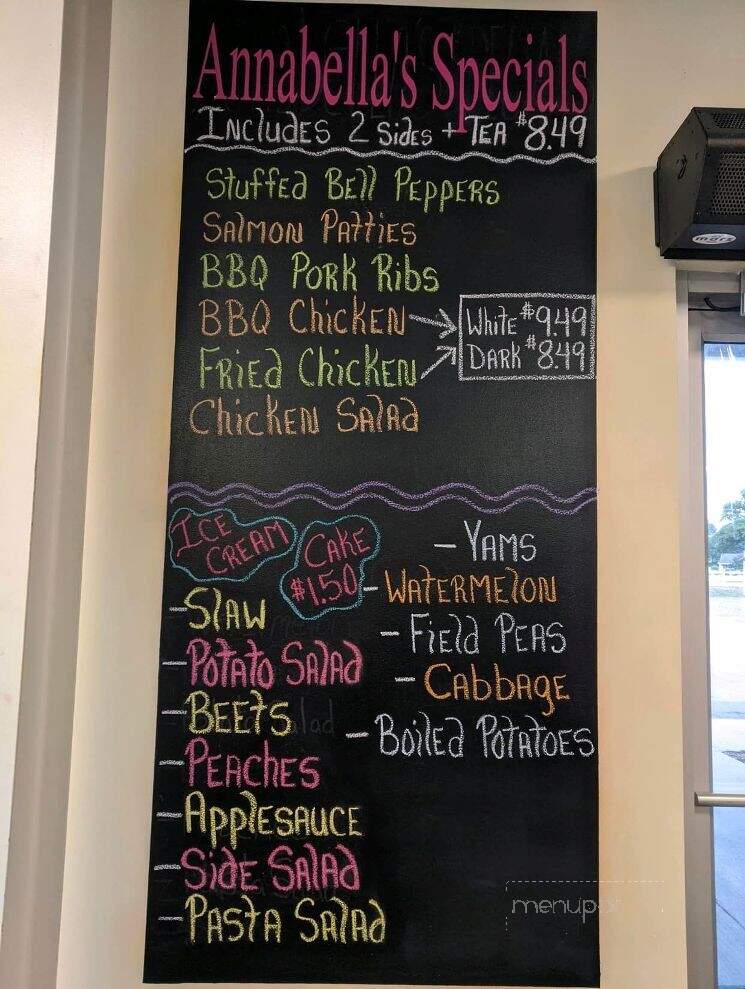 Annabella's Specials
Includes 2 Sides + Tea $8.49
Stuffed Bell Peppers
Salmon Patties
BBQ Pork Ribs
BBQ Chicken
White $9.49
Fried Chicken
Dark $8.49
Chicken Salad
Ice Cream
Cake $1.50
- Slaw
- Potato Salad
- Beets
- Peaches
- Applesauce
- Side Salad
- Pasta Salad
- Yams
- Watermelon
- Field Peas
- Cabbage
- Boiled Potatoes